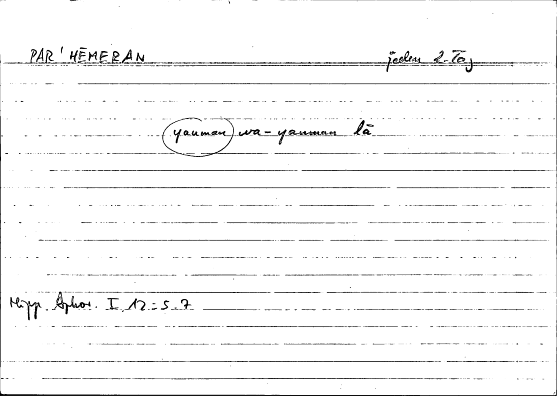 PAR' HĒMERAN jeden 2. Tag
yauman wa-yauman lā
Hipp. Aphor. I 12 = 5.7